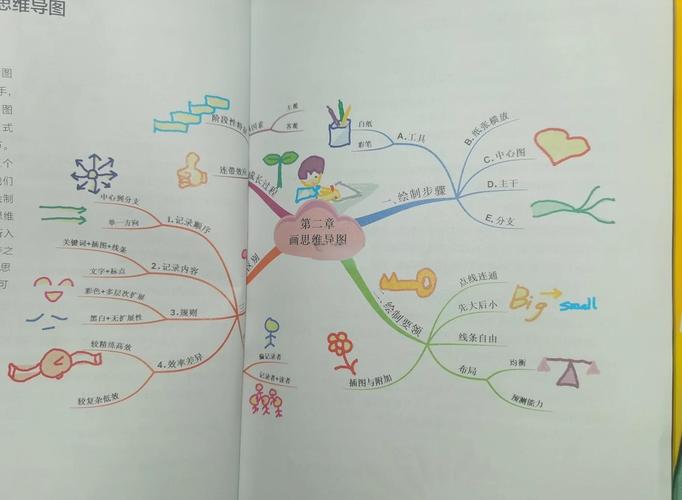 思维导图
图
手,
图
式
个
我们
绘制
思维
入
之
思
可
第二章
画思维导图
一.绘制步骤
A.工具
白纸
彩笔
B.纸张横放
C.中心图
D.主干
E.分支
二.绘制要领
点线连通
先大后小
Big → small
线条自由
布局
均衡
预测能力
插图与附加
成长过程
主观
客观
阶段性特
连带效
1.记录顺序
中心到分支
单一方向
2.记录内容
关键词+插图+线条
文字+标点
3.规则
彩色+多层次扩展
黑白+无扩展性
4.效率差异
较精练高效
较复杂低效
偏记录者
记录者+读者